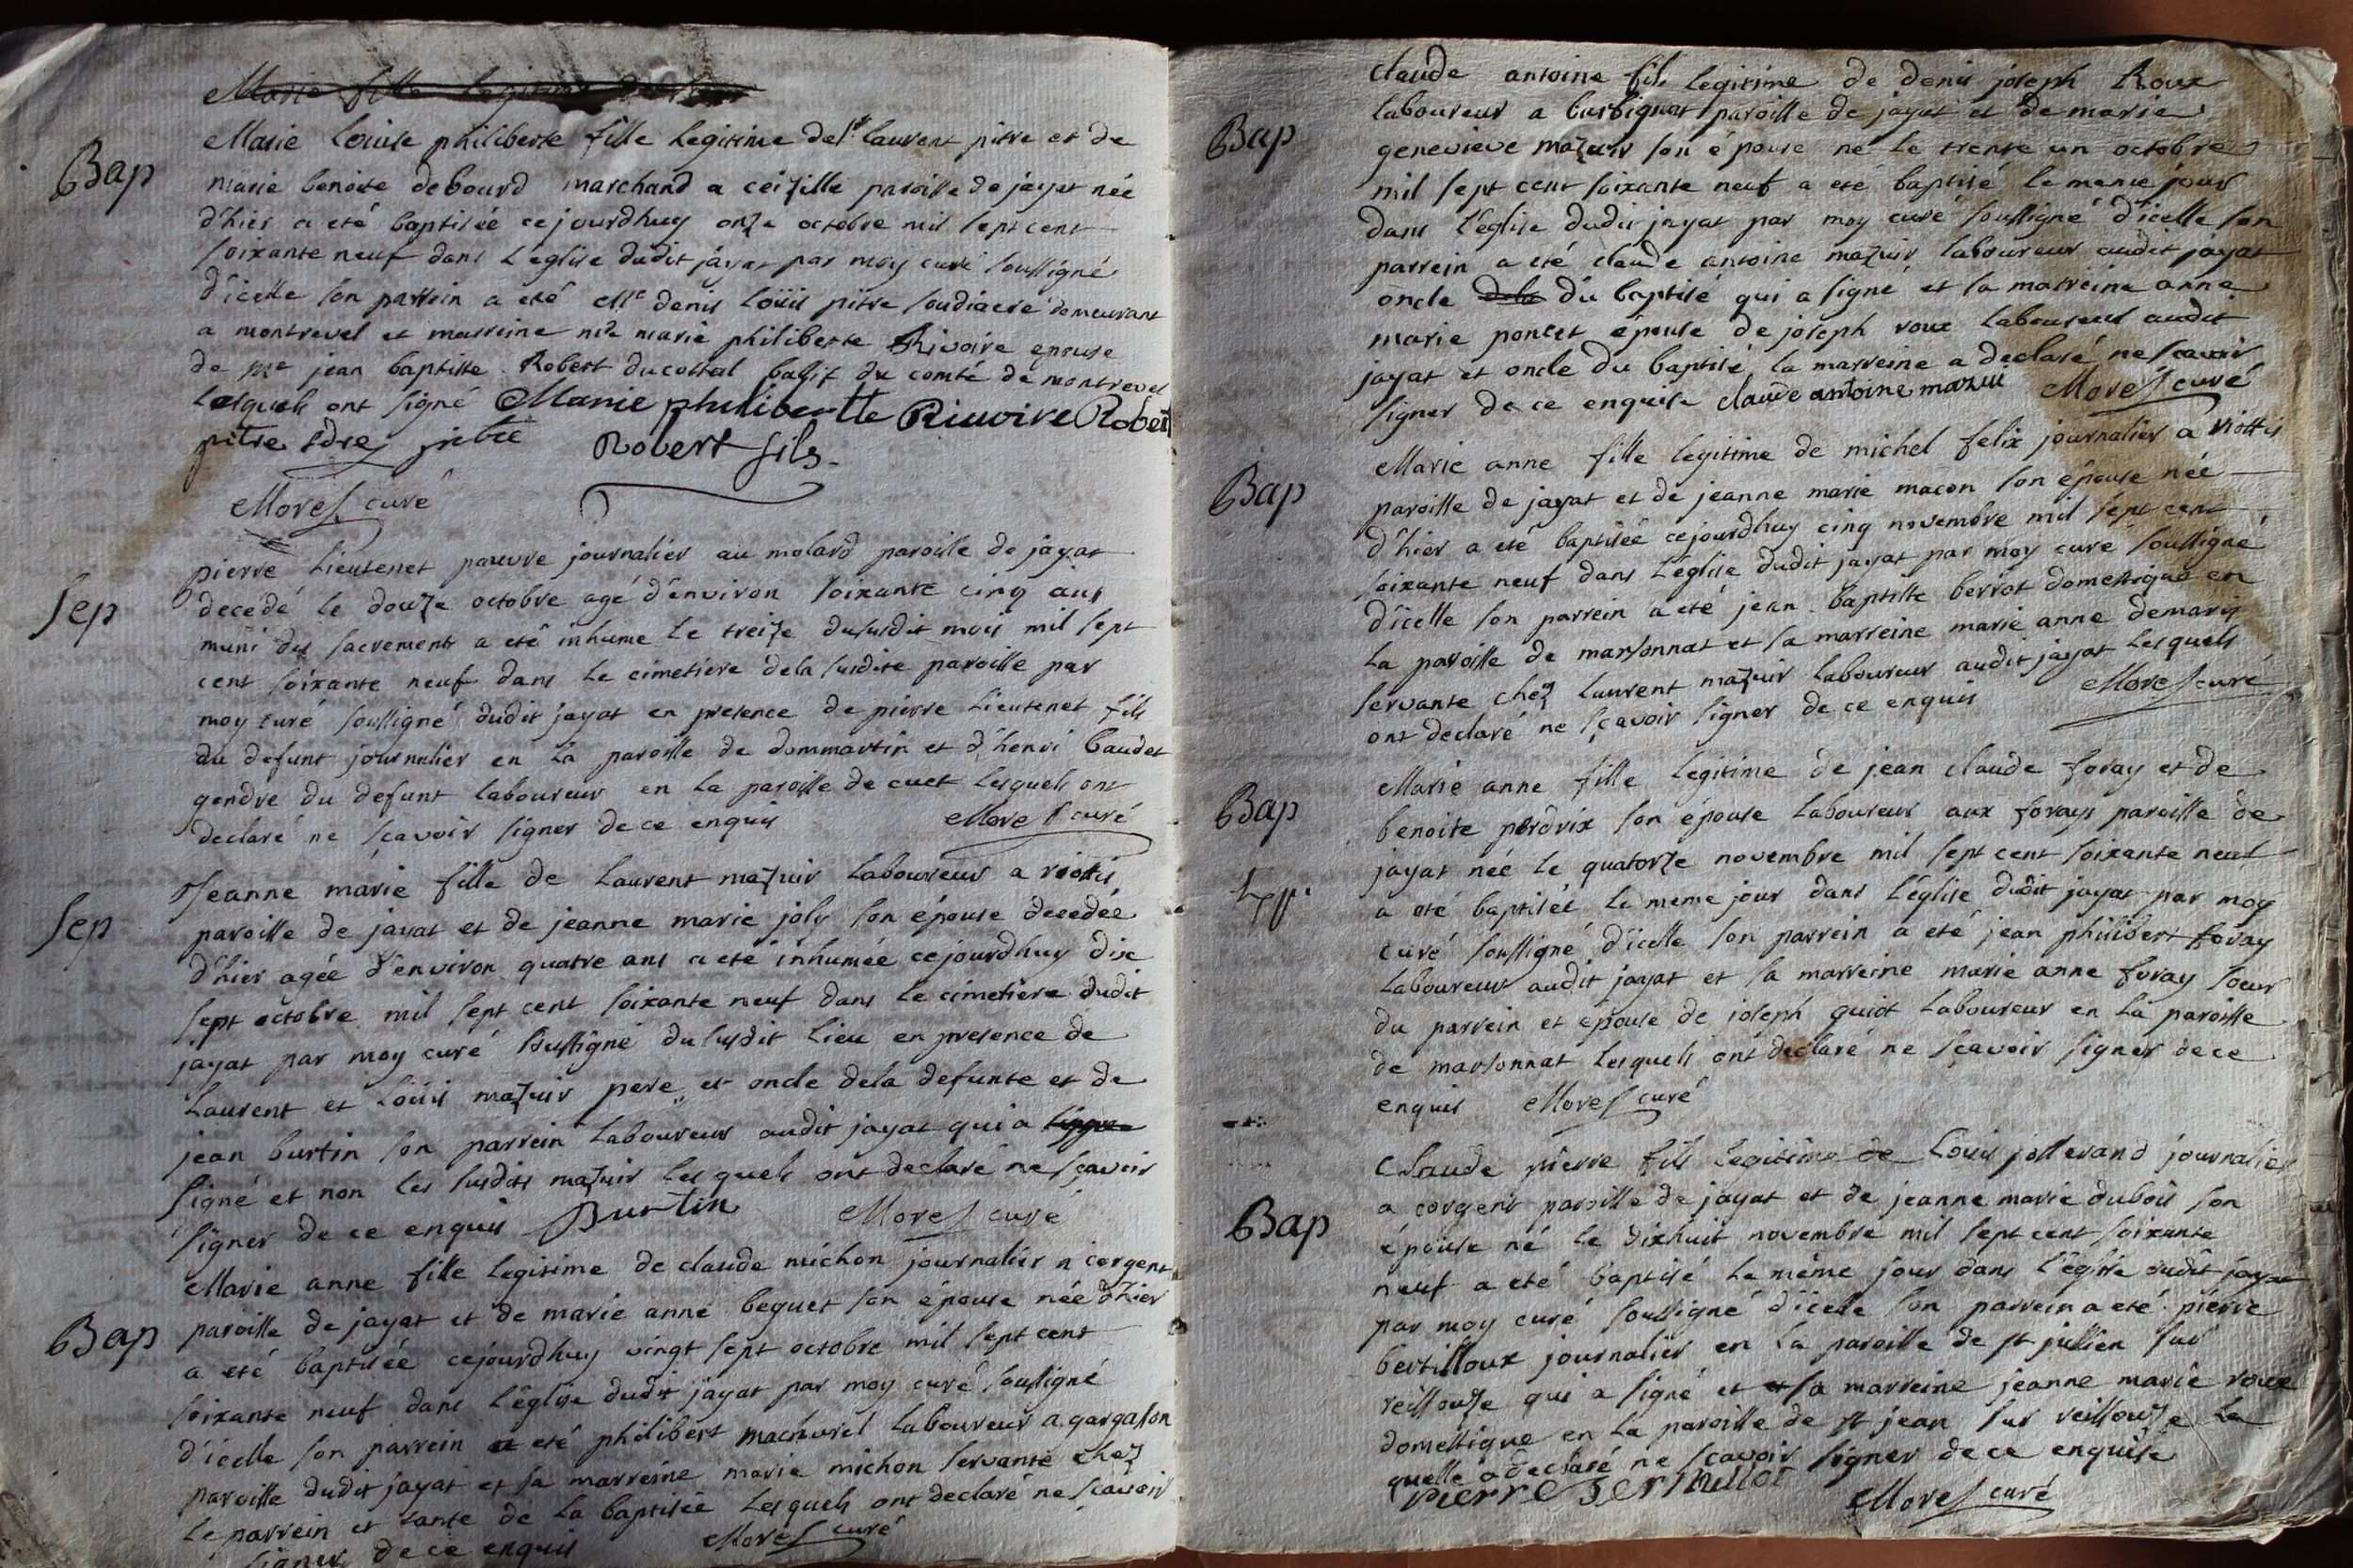 Marie fille legitime
Bap
Marie Louise philiberte fille legitime de Sr laurent pitre et de
marie benoite debourd marchand a ceizille paroisse de jayat née
d'hier a eté baptisée cejourdhuy onze octobre mil sept cent
soixante neuf dans l'eglise dudit jayat par moy curé soussigné
d'icelle son parrein a eté Mre denis Loüis pitre soudiacre demeurant
a montrevel et marreine marie philiberte Rivoire epouse
de Me jean baptiste Robert ducostal baillif du comté de montrevel
Lesquels ont signé Marie philibertte Riuoire Robert
pitre sdre pitre Robert fils
Morel curé
Sep
pierre Lieutenet pauvre journalier au molard paroisse de jayat
decedé le douze octobre agé d'environ soixante cinq ans
muni des sacrements a eté inhumé le treize dususdit mois mil sept
cent soixante neuf dans le cimetiere dela susdite paroisse par
moy curé soussigné dudit jayat en presence de pierre Lieutenet fils
du defunt journalier en la paroisse de dommartin et d'henri baudet
gendre du defunt laboureur en la paroisse de cuet lesquels ont
declaré ne scavoir signer de ce enquis Morel curé
Sep
Jeanne marie fille de Laurent mazuir Laboureur a riottis
paroisse de jayat et de jeanne marie joly son épouse decedée
d'hier agée d'environ quatre ans a eté inhumée cejourdhuy dix
sept octobre mil sept cent soixante neuf dans le cimetiere dudit
jayat par moy curé soussigné dususdit lieu en presence de
Laurent et Loüis mazuir pere et oncle dela defunte et de
jean burtin son parrein Laboureur audit jayat qui a signe
signé et non les susdits mazuir lesquels ont declaré ne sçavoir
signer de ce enquis Burtin Morel curé
Bap
Marie anne fille legitime de claude michon journalier a corgent
paroisse de jayat et de marie anne beguet son épouse née d'hier
a eté baptisée cejourdhuy vingt sept octobre mil sept cent
soixante neuf dans l'église dudit jayat par moy curé soussigné
d'icelle son parrein a eté philibert machurel laboureur a gargason
paroisse dudit jayat et sa marreine marie michon servante chez
le parrein et tante de la baptisée lesquels ont declaré ne scavoir
signer de ce enquis Morel curé
Bap
claude antoine fils legitime de denis joseph Roux
laboureur a curbignat paroisse de jayat et de marie
genevieve mazuir son épouse né le trente un octobre
mil sept cent soixante neuf a eté baptisé le meme jour
dans l'église dudit jayat par moy curé soussigné d'icelle son
parrein a eté claude antoine mazuir laboureur audit jayat
oncle dela du baptisé qui a signé et sa marreine anne
marie poncet épouse de joseph roux laboureur audit
jayat et oncle du baptisé, la marreine a declaré ne scavoir
signer de ce enquise claude antoine mazuir Morel curé
Bap
Marie anne fille legitime de michel felix journalier a riottis
paroisse de jayat et de jeanne marie macon son épouse née
d'hier a eté baptisée cejourdhuy cinq novembre mil sept cent
soixante neuf dans l'eglise dudit jayat par moy curé soussigné
d'icelle son parrein a eté jean baptiste berrot domestique en
la paroisse de marsonnat et sa marreine marie anne demarix
servante chez laurent mazuir laboureur audit jayat lesquels
ont declaré ne sçavoir signer de ce enquis Morel curé
Bap
Marie anne fille legitime de jean claude foray et de
benoite perdrix son épouse laboureur aux forays paroisse de
jayat née le quatorze novembre mil sept cent soixante neuf
a eté baptisée le meme jour dans l'église dudit jayat par moy
curé soussigné d'icelle son parrein a eté jean philibert foray
Laboureur audit jayat et sa marreine marie anne foray soeur
du parrein et epouse de joseph guiot laboureur en la paroisse
de marsonnat lesquels ont declaré ne sçavoir signer de ce
enquis Morel curé
Bap
Claude pierre fils legitime de Loüis jollerand journalier
a corgent paroisse de jayat et de jeanne marie dubois son
épouse né le dixhuit novembre mil sept cent soixante
neuf a eté baptisé le même jour dans l'église dudit jayat
par moy curé soussigné d'icelle son parrein a eté pierre
bertilloux journalier en la paroisse de st jullien sur
reissouze qui a signé et sa marreine jeanne marie roux
domestique en la paroisse de st jean sur reissouze la
quelle a declaré ne scavoir signer de ce enquise
pierre Morel curé